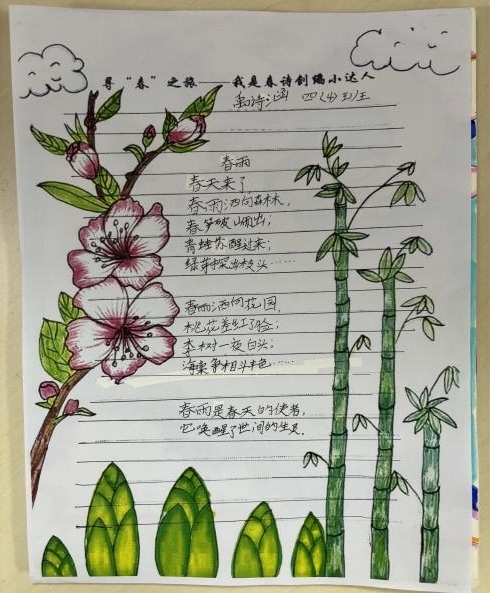 寻“春”之旅——我是春诗创编小达人
诗涵 四(4)班
春雨
春天来了
春雨洒向森林,
春笋破土而出;
青蛙苏醒过来;
绿芽探出枝头……
春雨洒向花园,
桃花羞红了脸;
李树一夜白头;
海棠争相斗艳……
春雨是春天的使者,
它唤醒了世间的生灵.